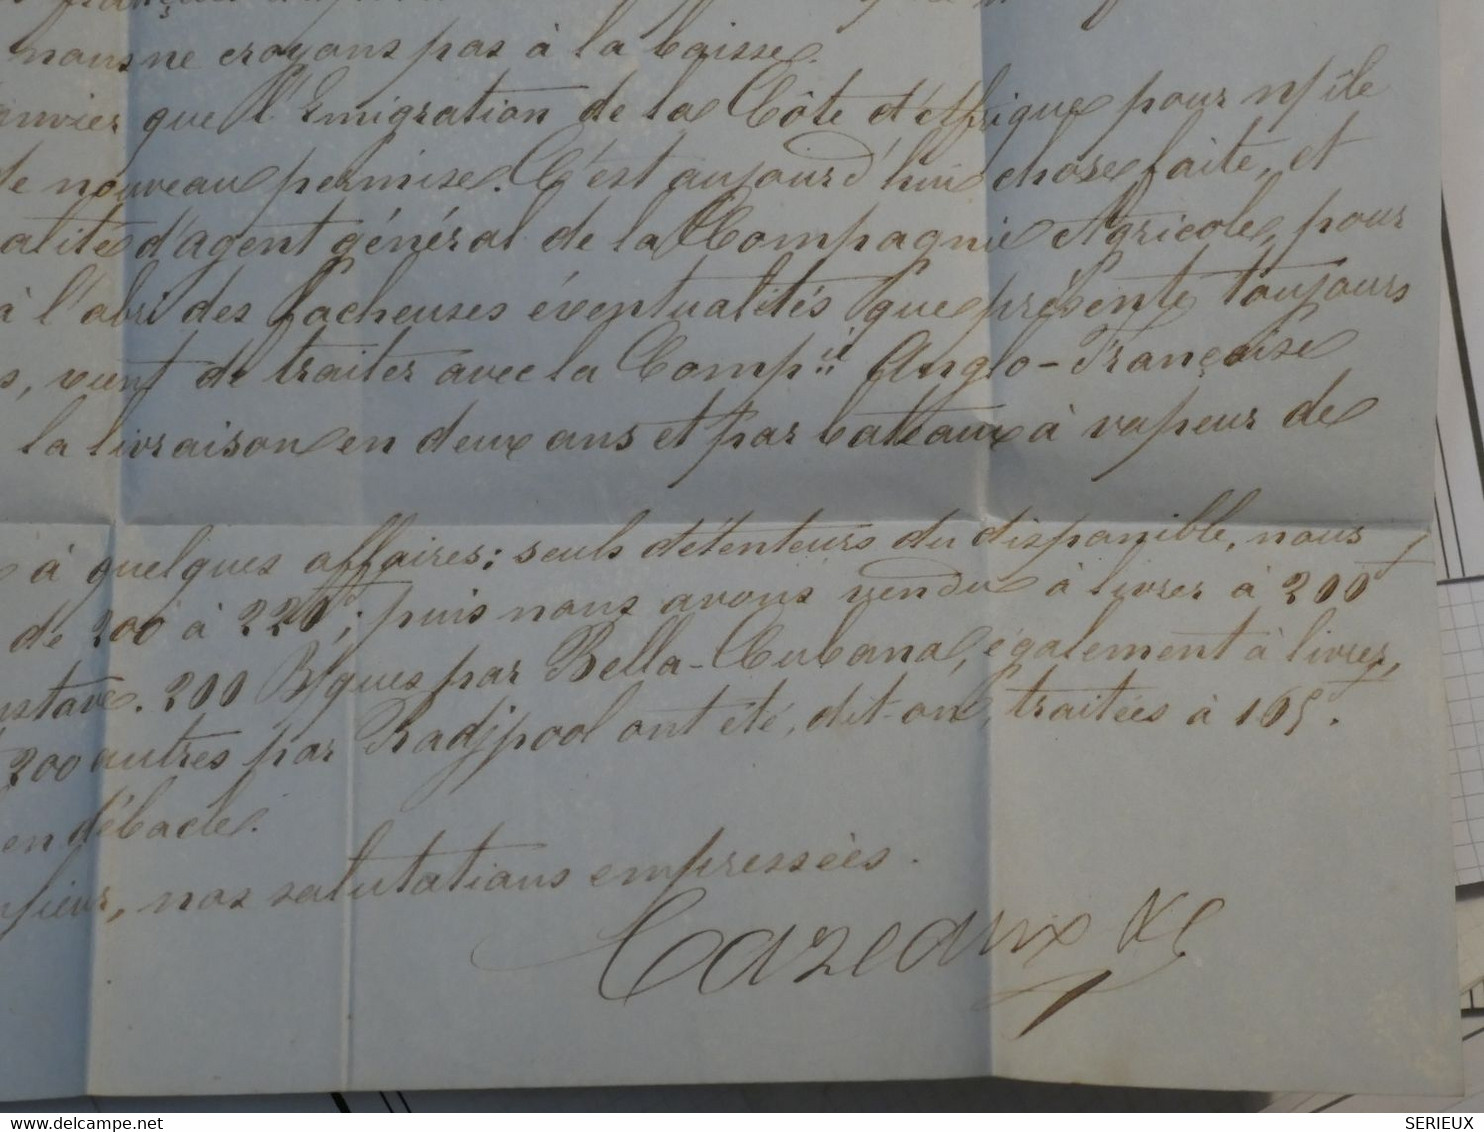 nous ne croyons pas à la baisse.
que l'Emigration de la Côte d'Afrique pour n/ île
de nouveau permise. C'est aujourd'hui chose faite, et
alité d'agent général de la Compagnie Agricole, pour
à l'abri des facheuses éventualités que présente toujours
s, vient de traiter avec la Comp.ie Anglo-Française
la livraison en deux ans et par bateaux à vapeur de
à quelques affaires; seuls détenteurs du disponible, nous
de 200 à 220f; puis nous avons vendu à livrer à 200f
ustave. 200 B/ques par Bella-Cubana, également à livrer,
200 autres par Radjpool ont été, dit-on, traitées à 165f.
en débacle.
sieur, nos salutations empressées.
Cazeaux & C
SERIEUX